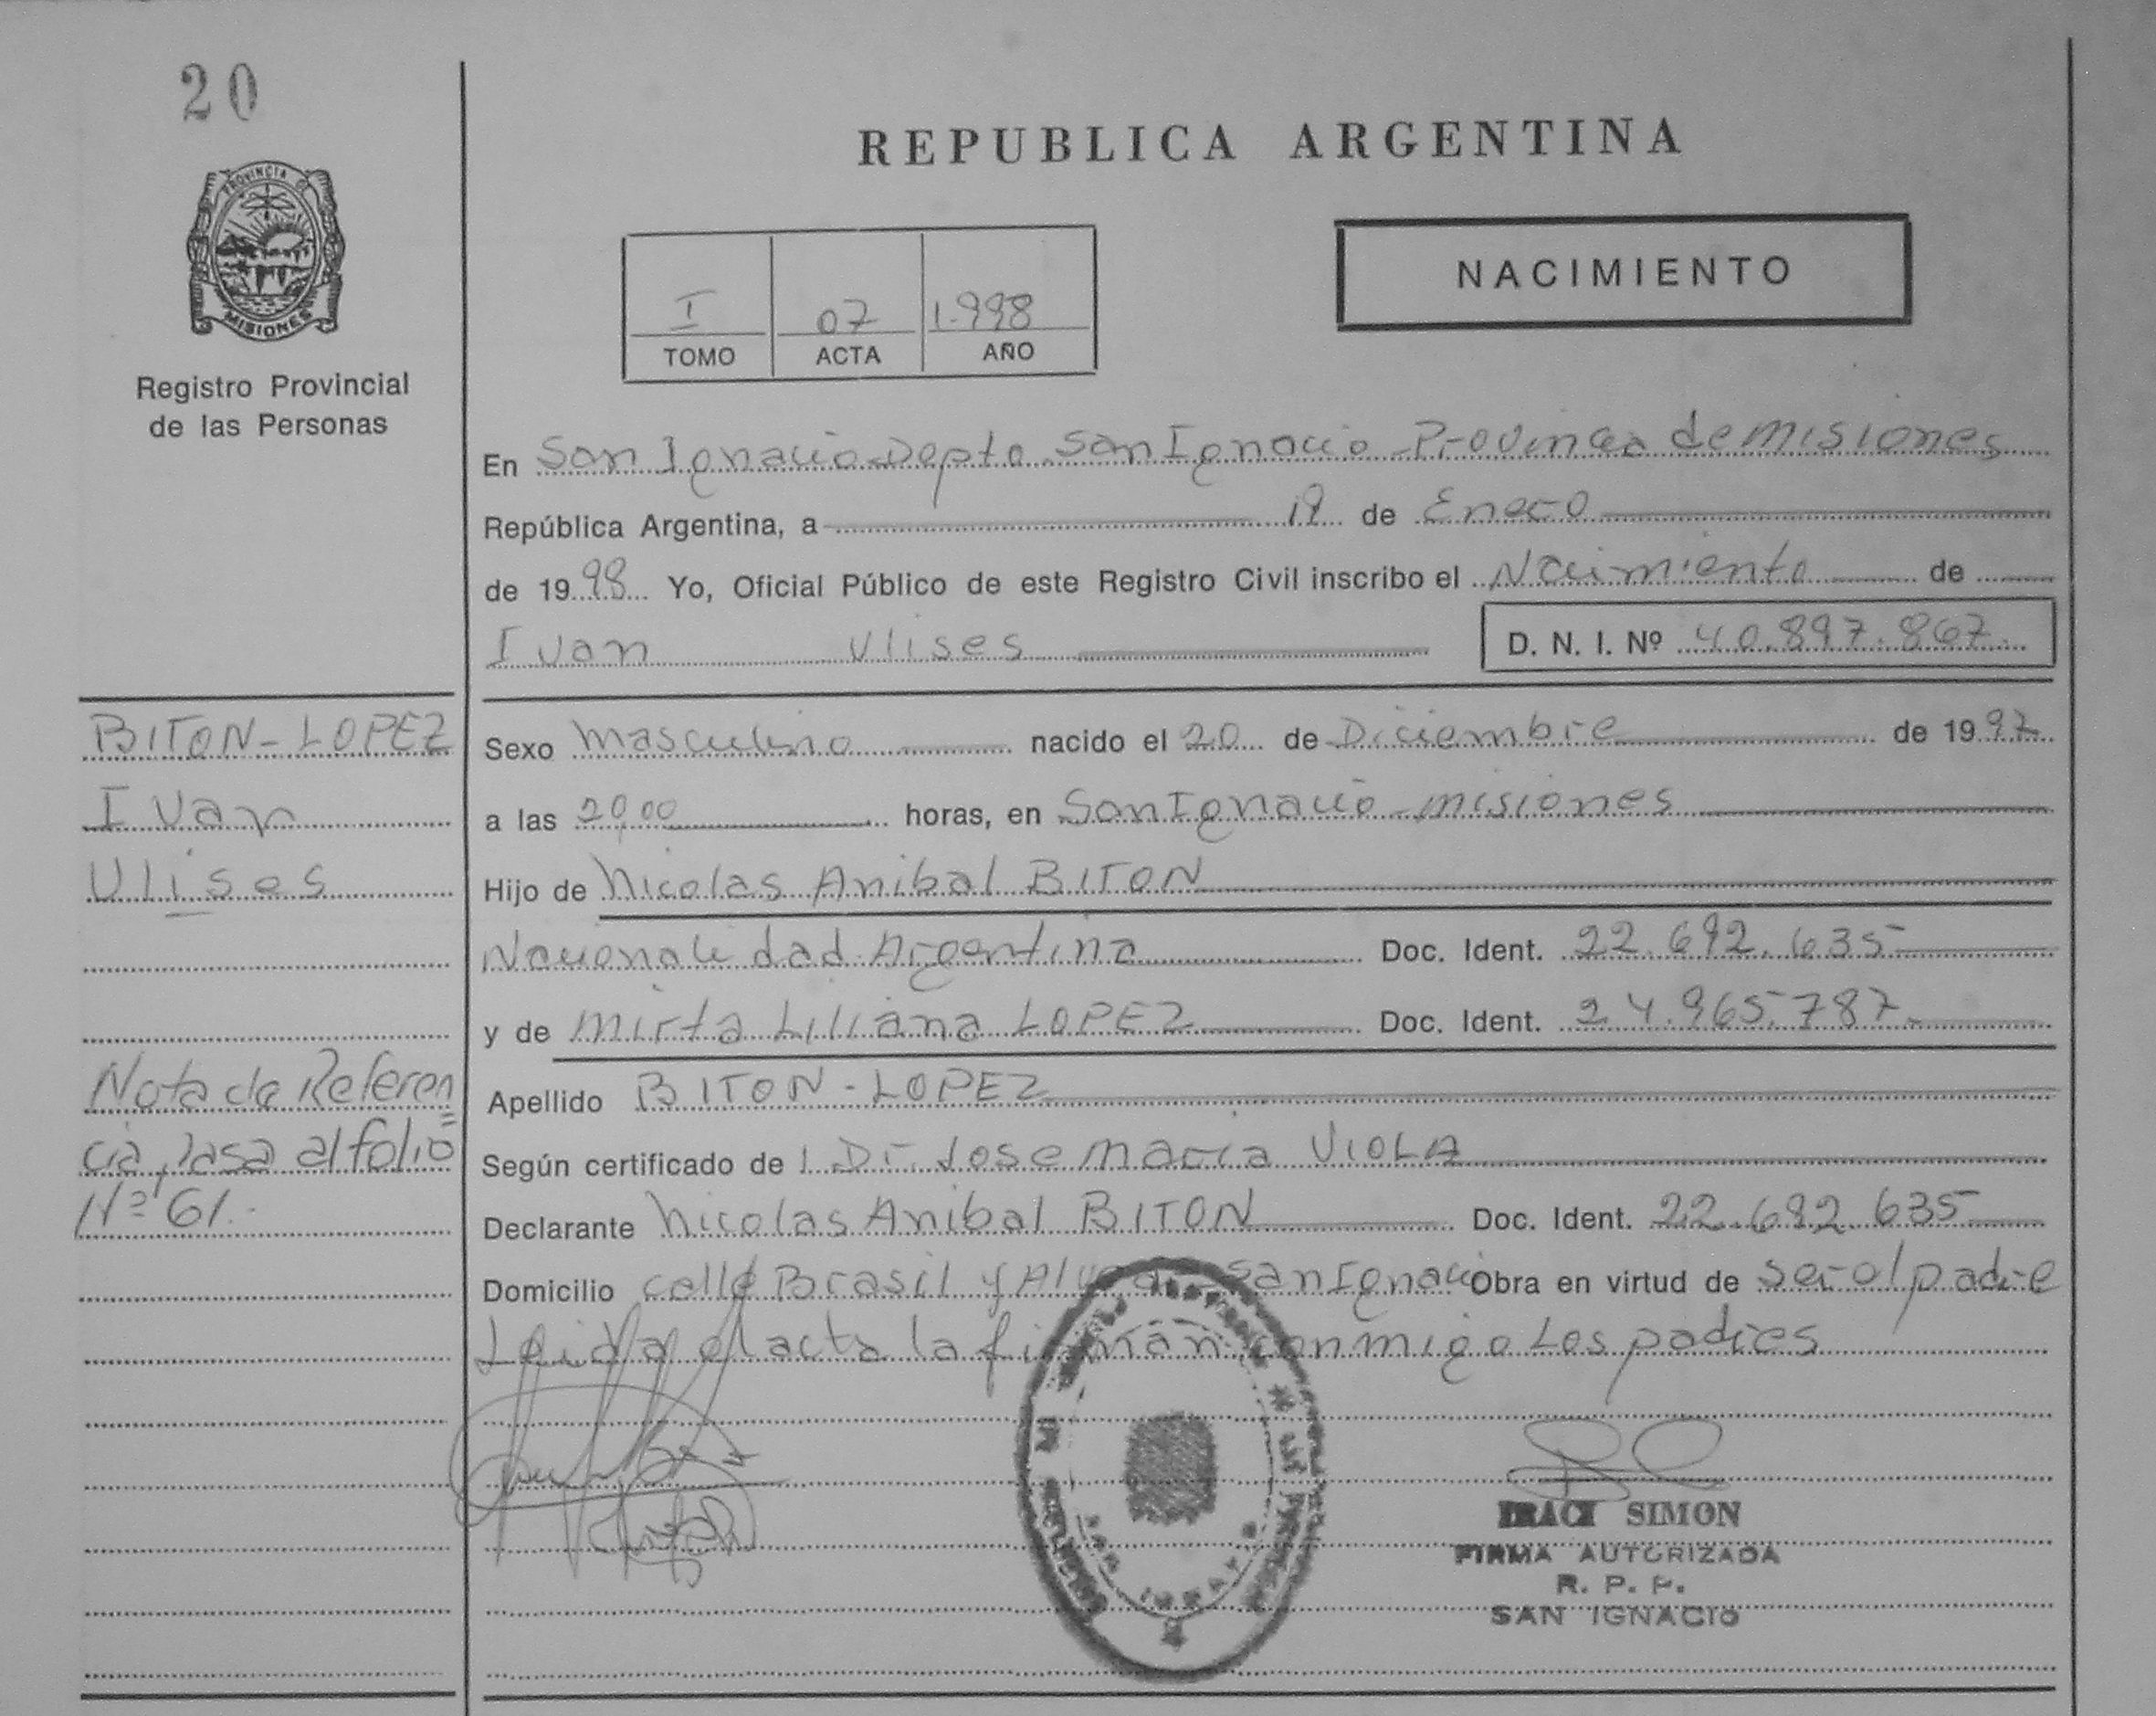 20
REPUBLICA ARGENTINA
PROVINCIA DE
MISIONES
Registro Provincial
de las Personas
NACIMIENTO
I 07 1.998
TOMO ACTA AÑO
En San Ignacio Depto San Ignacio Provincia de misiones
República Argentina, a de Enero
de 1998 Yo, Oficial Público de este Registro Civil inscribo el Nacimiento de
Ivan Ulises D. N. I. Nº 40.897.867.
BITON-LOPEZ
Ivan
Ulises
Nota de Referen=
cia, Pasa al folio
Nº 61.-
Sexo masculino nacido el 20 de Diciembre de 1997
a las 20,00 horas, en San Ignacio-misiones
Hijo de Nicolas Anibal BITON
Nacionalidad Argentina Doc. Ident. 22.692.635
y de mirta Liliana LOPEZ Doc. Ident. 24.965.787.
Apellido BITON-LOPEZ
Según certificado de Dr. Jose maria VIOLA
Declarante Nicolas Anibal BITON Doc. Ident. 22.692.635
Domicilio calle Brasil y San Ignacio Obra en virtud de ser el padre
Leida el acta la firman conmigo Los padres
SIMON
FIRMA AUTORIZADA
R. P. P.
SAN IGNACIO